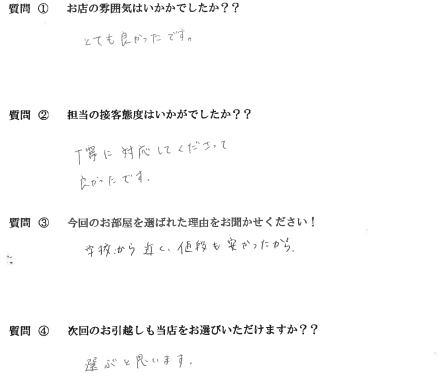 質問 ① お店の雰囲気はいかかでしたか??
とても良かったです。
質問 ② 担当の接客態度はいかがでしたか??
丁寧に対応してくださって
良かったです.
質問 ③ 今回のお部屋を選ばれた理由をお聞かせください!
学校から近く、値段も安かったから.
質問 ④ 次回のお引越しも当店をお選びいただけますか??
選ぶと思います.